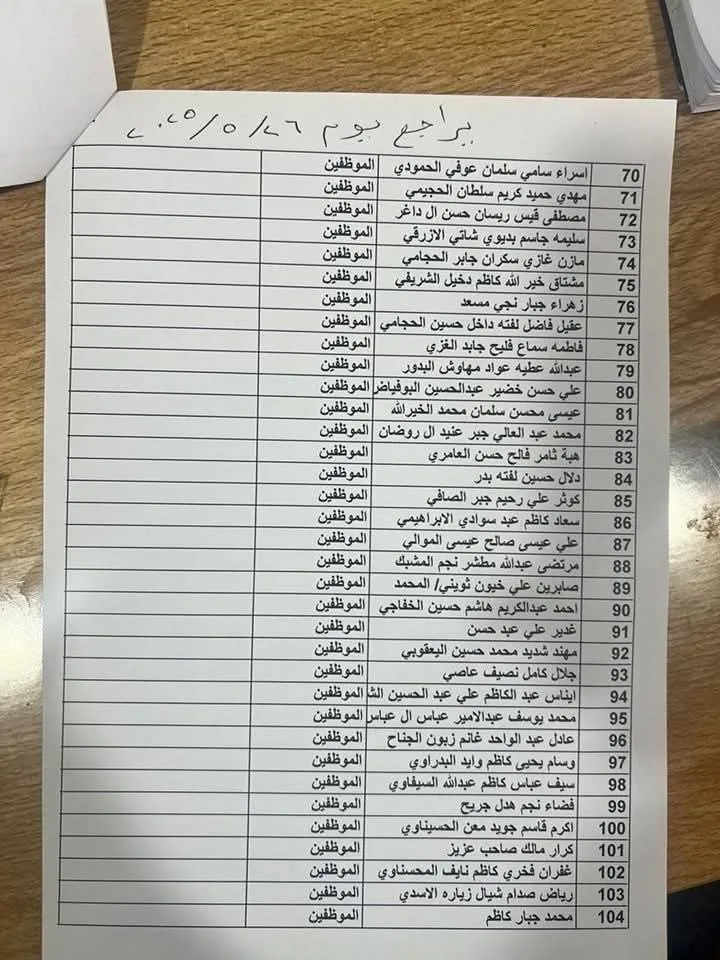 يراجع يوم ٢٦/٥/٢٠٢٥
70 اسراء سامي سلمان عوفي الحمودي الموظفين
71 مهدي حميد كريم سلطان الحجيمي الموظفين
72 مصطفى قيس ريسان حسن ال داغر الموظفين
73 سليمه جاسم بديوي شاتي الازرقي الموظفين
74 مازن غازي سكران جابر الحجامي الموظفين
75 مشتاق خير الله كاظم دخيل الشريفي الموظفين
76 زهراء جبار نجي مسعد الموظفين
77 عقيل فاضل لفته داخل حسين الحجامي الموظفين
78 فاطمه سماع فليح جابد الغزي الموظفين
79 عبدالله عطيه عواد مهاوش البدور الموظفين
80 علي حسن خضير عبدالحسين البوفياض الموظفين
81 عيسى محسن سلمان محمد الخيرالله الموظفين
82 محمد عبد العالي جبر عنيد ال روضان الموظفين
83 هبة ثامر فالح حسن العامري الموظفين
84 دلال حسين لفته بدر الموظفين
85 كوثر علي رحيم جبر الصافي الموظفين
86 سعاد كاظم عبد سوادي الابراهيمي الموظفين
87 علي عيسى صالح عيسى الموالي الموظفين
88 مرتضى عبدالله مطشر نجم المشبك الموظفين
89 صابرين علي خيون ثويني/ المحمد الموظفين
90 احمد عبدالكريم هاشم حسين الخفاجي الموظفين
91 غدير علي عبد حسن الموظفين
92 مهند شديد محمد حسين اليعقوبي الموظفين
93 جلال كامل نصيف عاصي الموظفين
94 ايناس عبد الكاظم علي عبد الحسين الش الموظفين
95 محمد يوسف عبدالامير عباس ال عباس الموظفين
96 عادل عبد الواحد غانم زبون الجناح الموظفين
97 وسام يحيى كاظم وايد البدراوي الموظفين
98 سيف عباس كاظم عبدالله السيفاوي الموظفين
99 فضاء نجم هدل جريح الموظفين
100 اكرم قاسم جويد معن الحسيناوي الموظفين
101 كرار مالك صاحب عزيز الموظفين
102 غفران فخري كاظم نايف المحسناوي الموظفين
103 رياض صدام شيال زياره الاسدي الموظفين
104 محمد جبار كاظم الموظفين